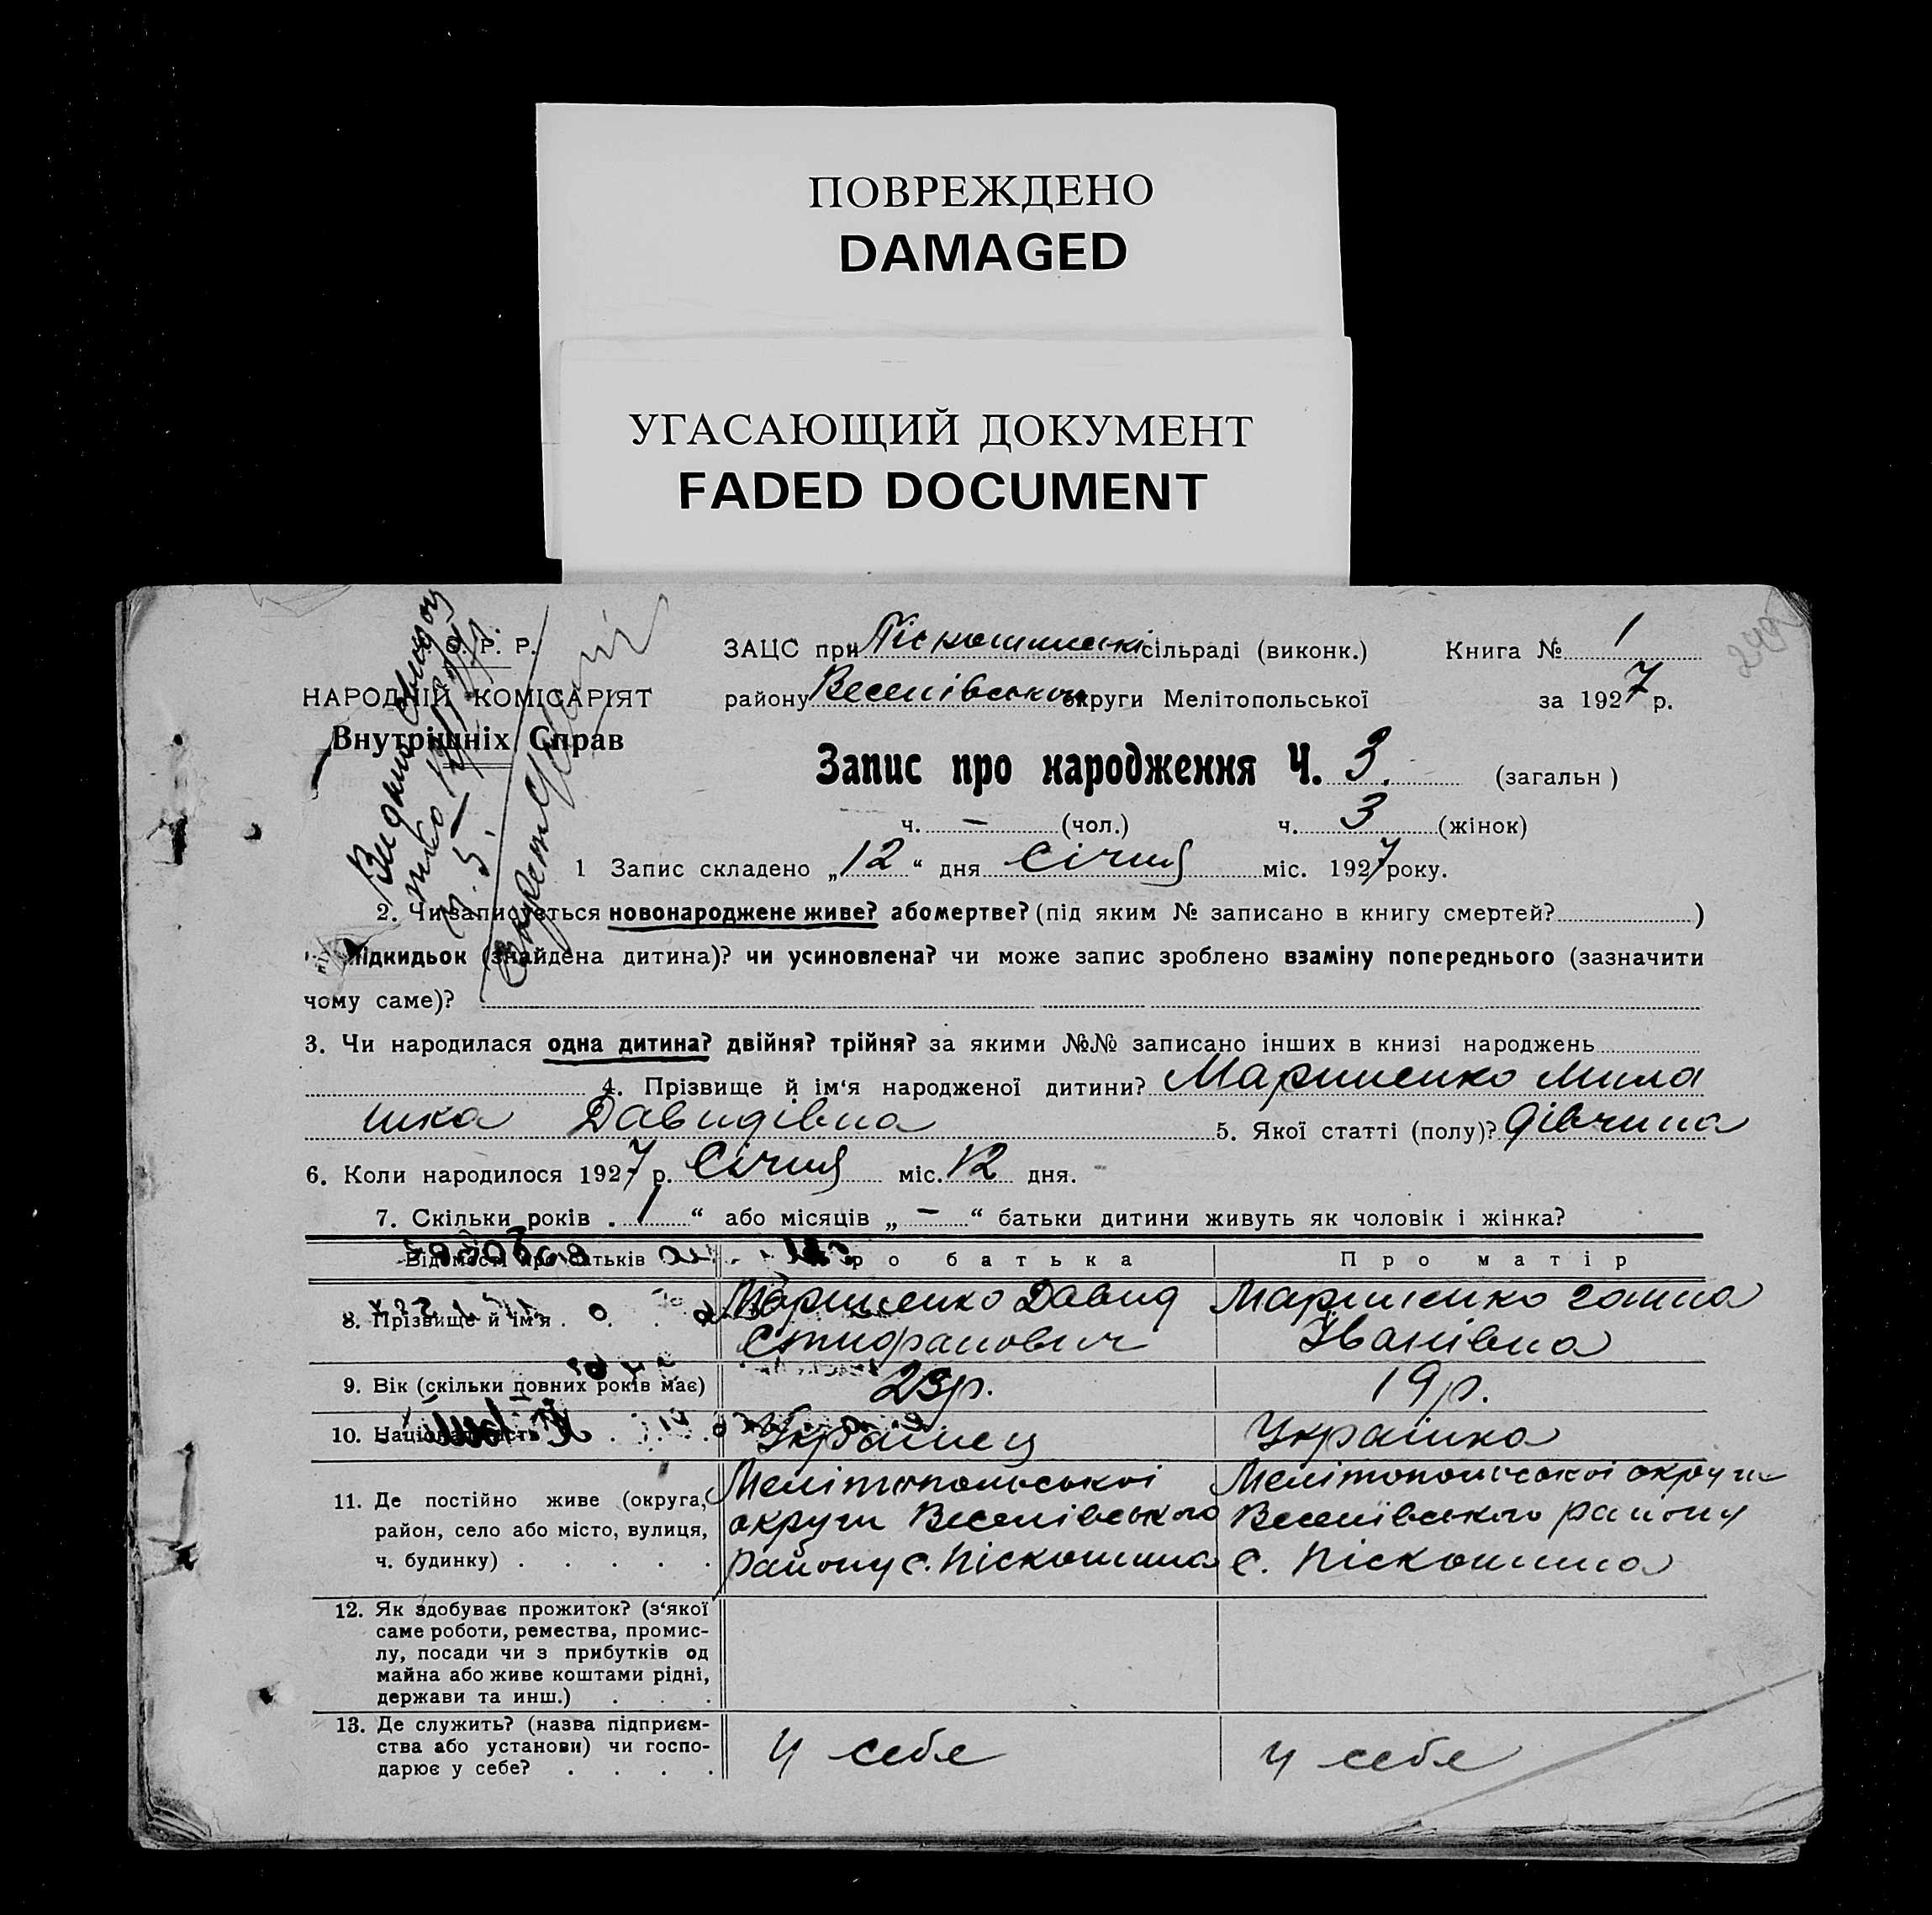 ПОВРЕЖДЕНО
DAMAGED
УГАСАЮЩИЙ ДОКУМЕНТ
FADED DOCUMENT
С. Р. Р.
НАРОДНІЙ КОМІСАРІЯТ
Внутрішніх Справ
ЗАЦС при Піскошинскі сільраді (виконк.) Книга № 1
району Веселівського округи Мелітопольської за 1927 р.
Запис про народження Ч. 3. (загальн)
ч. — (чол.) ч. 3 (жінок)
1 Запис складено „12“ дня Січня міс. 1927 року.
2. Чи записується новонароджене живе? або мертве? (під яким № записано в книгу смертей? )
підкидьок (знайдена дитина)? чи усиновлена? чи може запис зроблено взаміну попереднього (зазначити
чому саме)?
3. Чи народилася одна дитина? двійня? трійня? за якими №№ записано інших в книзі народжень
4. Прізвище й ім‘я народженої дитини? Маришенко Мила
шка Давидівна 5. Якої статті (полу)? дівчина
6. Коли народилося 1927 р. Січня міс. 12 дня.
7. Скільки років „1“ або місяців „—“ батьки дитини живуть як чоловік і жінка?
Відомості про батьків Про батька Про матір
8. Прізвище й ім‘я . . . Маришенко Давид Маришенко Ганна
Єтифанович Іванівна
9. Вік (скільки повних років має) 23р. 19р.
10. Національність Українец Українка
11. Де постійно живе (округа, район, село або місто, вулиця, ч. будинку) . . . . .
Мелітопольської округи Веселівського району с. Піскошина
Мелітопольської округи Веселівського району с. Піскошина
12. Як здобуває прожиток? (з‘якої
саме роботи, ремества, промис-
лу, посади чи з прибутків од
майна або живе коштами рідні,
держави та инш.) . . .
13. Де служить? (назва підприєм-
ства або установи) чи госпо-
дарює у себе? . . . .
у себе у себе